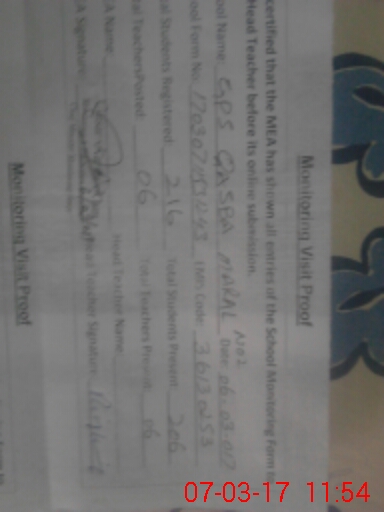 Monitoring Visit Proof
certified that the MEA has shown all entries of the School Monitoring Form
Head Teacher before its online submission.
ool Name: GPS QASBA MARAL No2 Date: 06-03-017
ool Form No: EMIS Code: 36130253
tal Students Registered: 216 Total Students Present: 206
tal Teachers Posted: 06 Total Teachers Present: 06
A Name: Head Teacher Name:
A Signature: Head Teacher Signature:
Monitoring Visit Proof
07-03-17 11:54